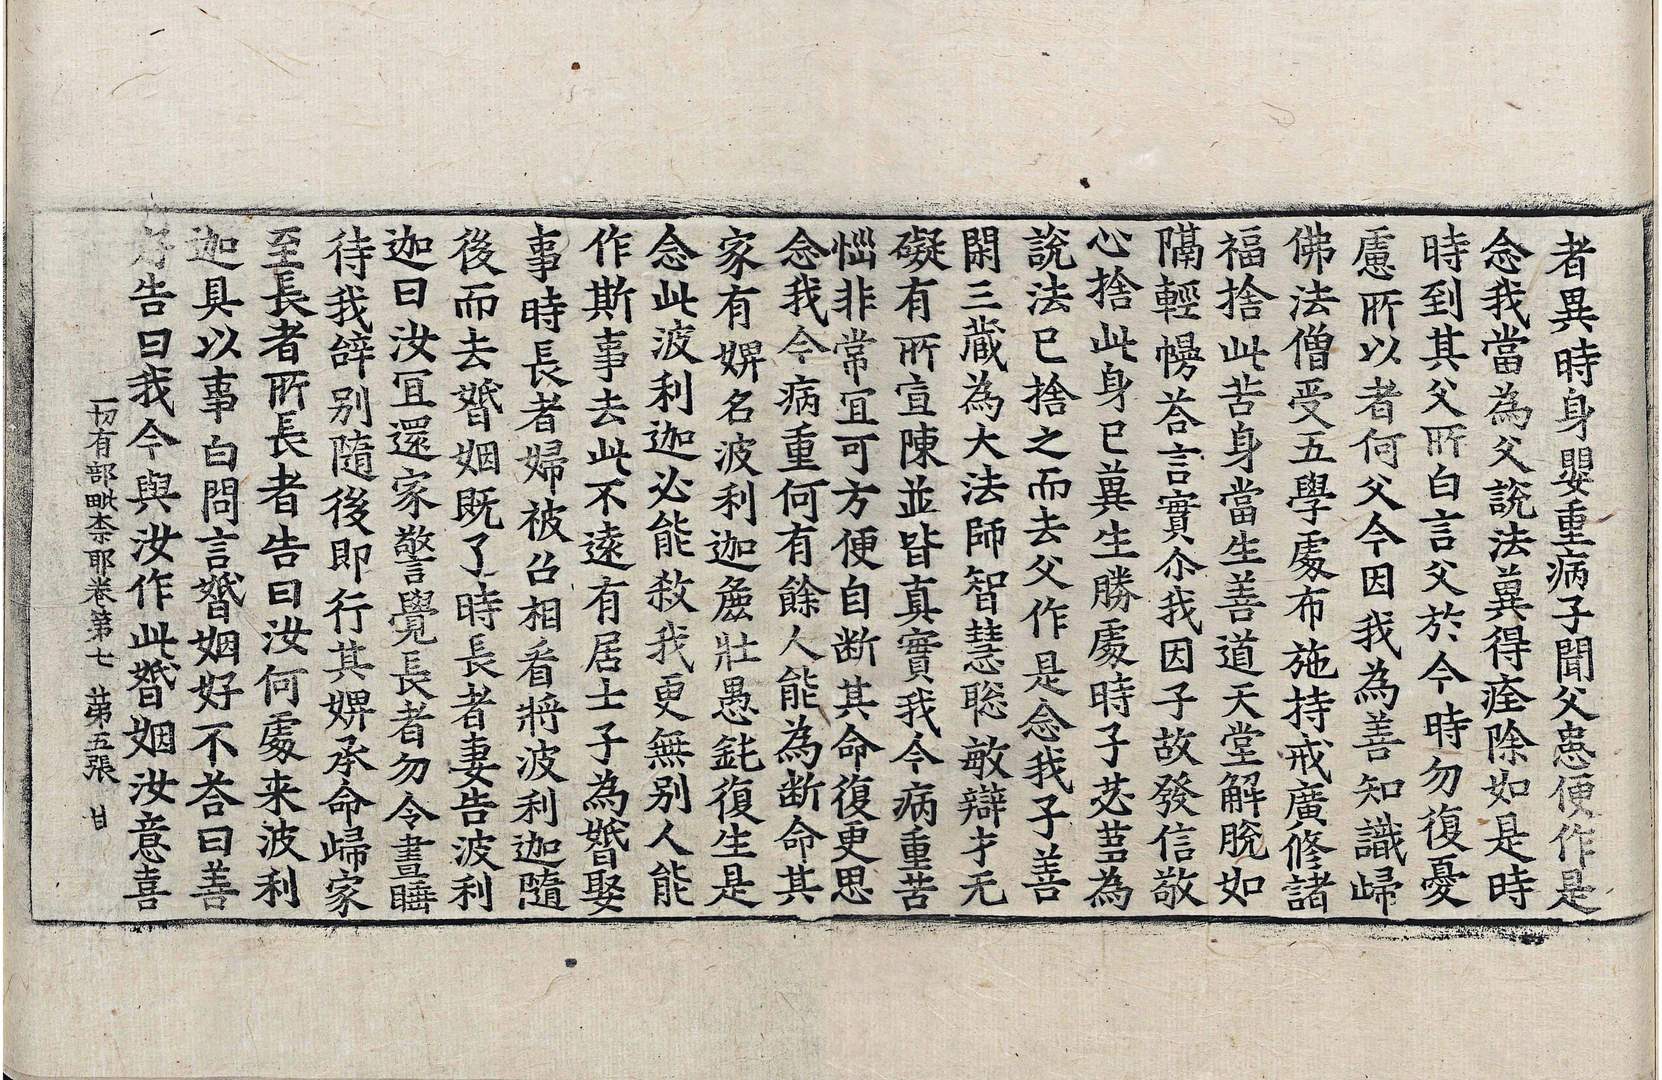 者異時身嬰重病子聞父患便作是
念我當為父說法兾得痊除如是時
時到其父所白言父於今時勿復憂
慮所以者何父今因我為善知識歸
佛法僧受五學處布施持戒廣修諸
福捨此苦身當生善道天堂解脫如
隔輕幔荅言實尒我因子故發信敬
心捨此身已兾生勝處時子苾蒭為
說法已捨之而去父作是念我子善
閑三藏為大法師智慧聡敏辯才无
礙有所宣陳並皆真實我今病重苦
惱非常冝可方便自断其命復更思
念我今病重何有餘人能為断命其
家有婢名波利迦麁壯愚鈍復生是
念此波利迦必能敎我更無別人能
作斯事去此不遠有居士子為婚娶
事時長者婦被召相看將波利迦隨
後而去婚姻既了時長者妻告波利
迦曰汝冝還家警覺長者勿令晝睡
待我辝別隨後即行其婢承命歸家
至長者所長者告曰汝何處来波利
迦具以事白問言婚姻好不荅曰善
好告曰我今與汝作此婚姻汝意喜
一切有部毗柰耶卷第七　苐五張　甘